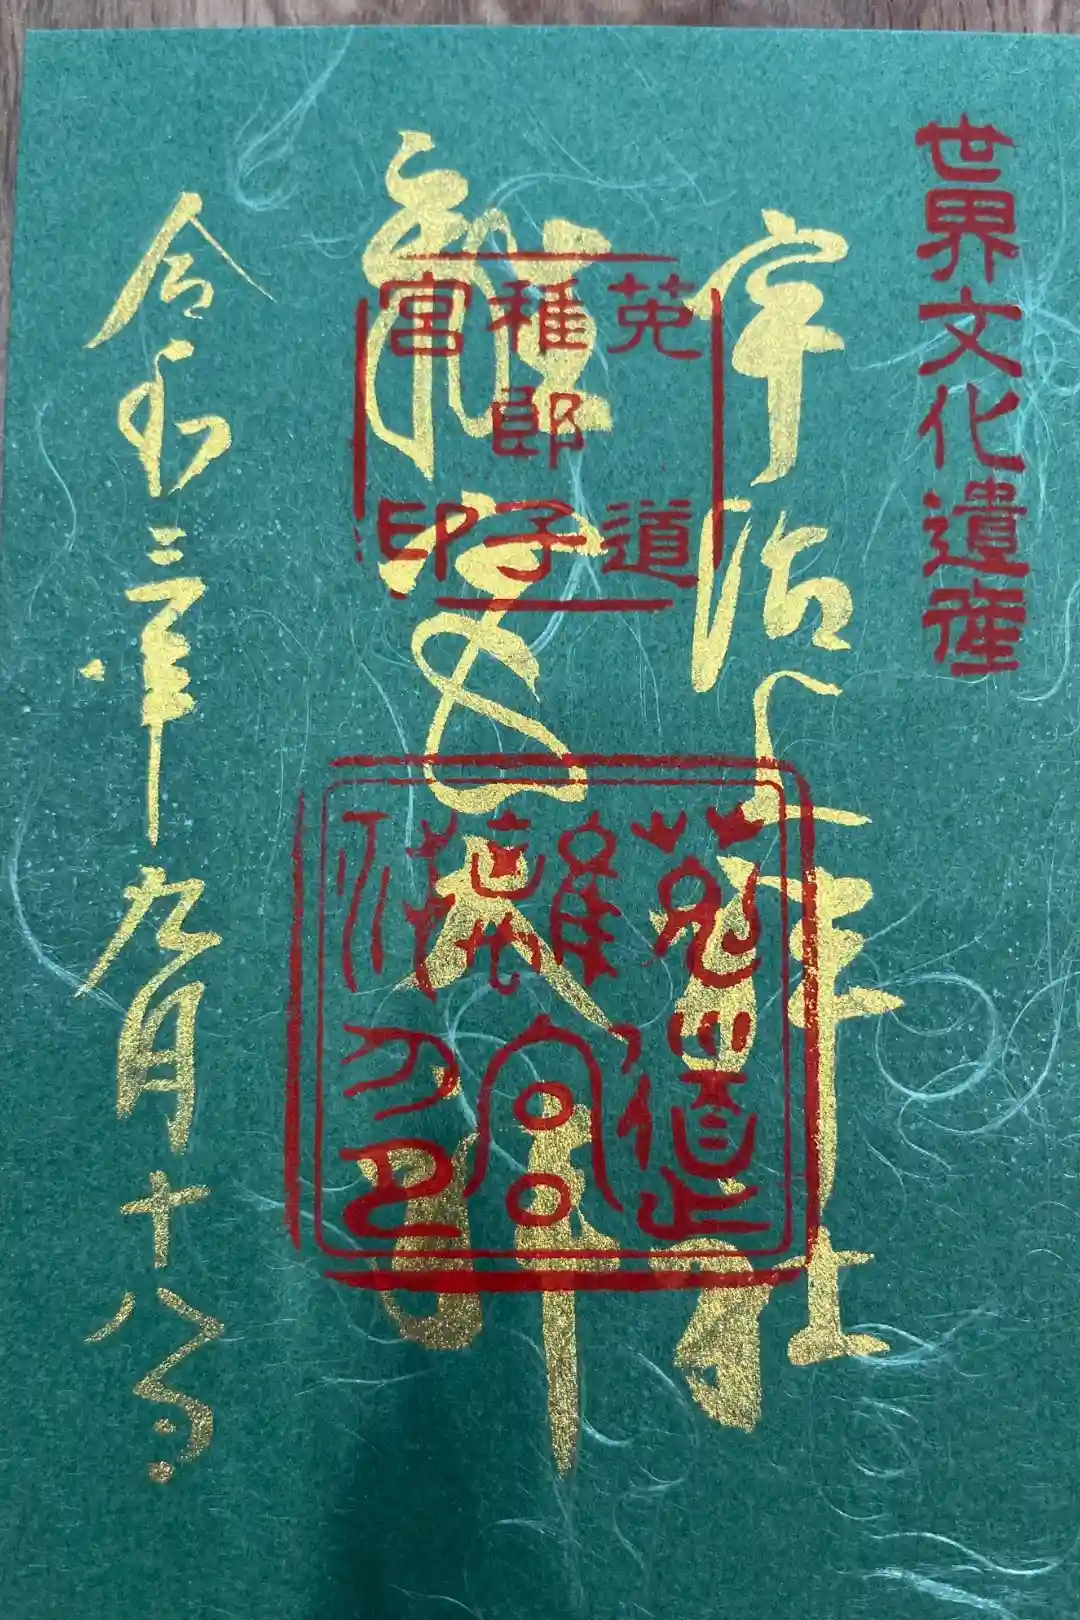 世界文化遺産
宇治上神社
離宮大神
令和三年九月十八日
菟道
稚郎子
宮印